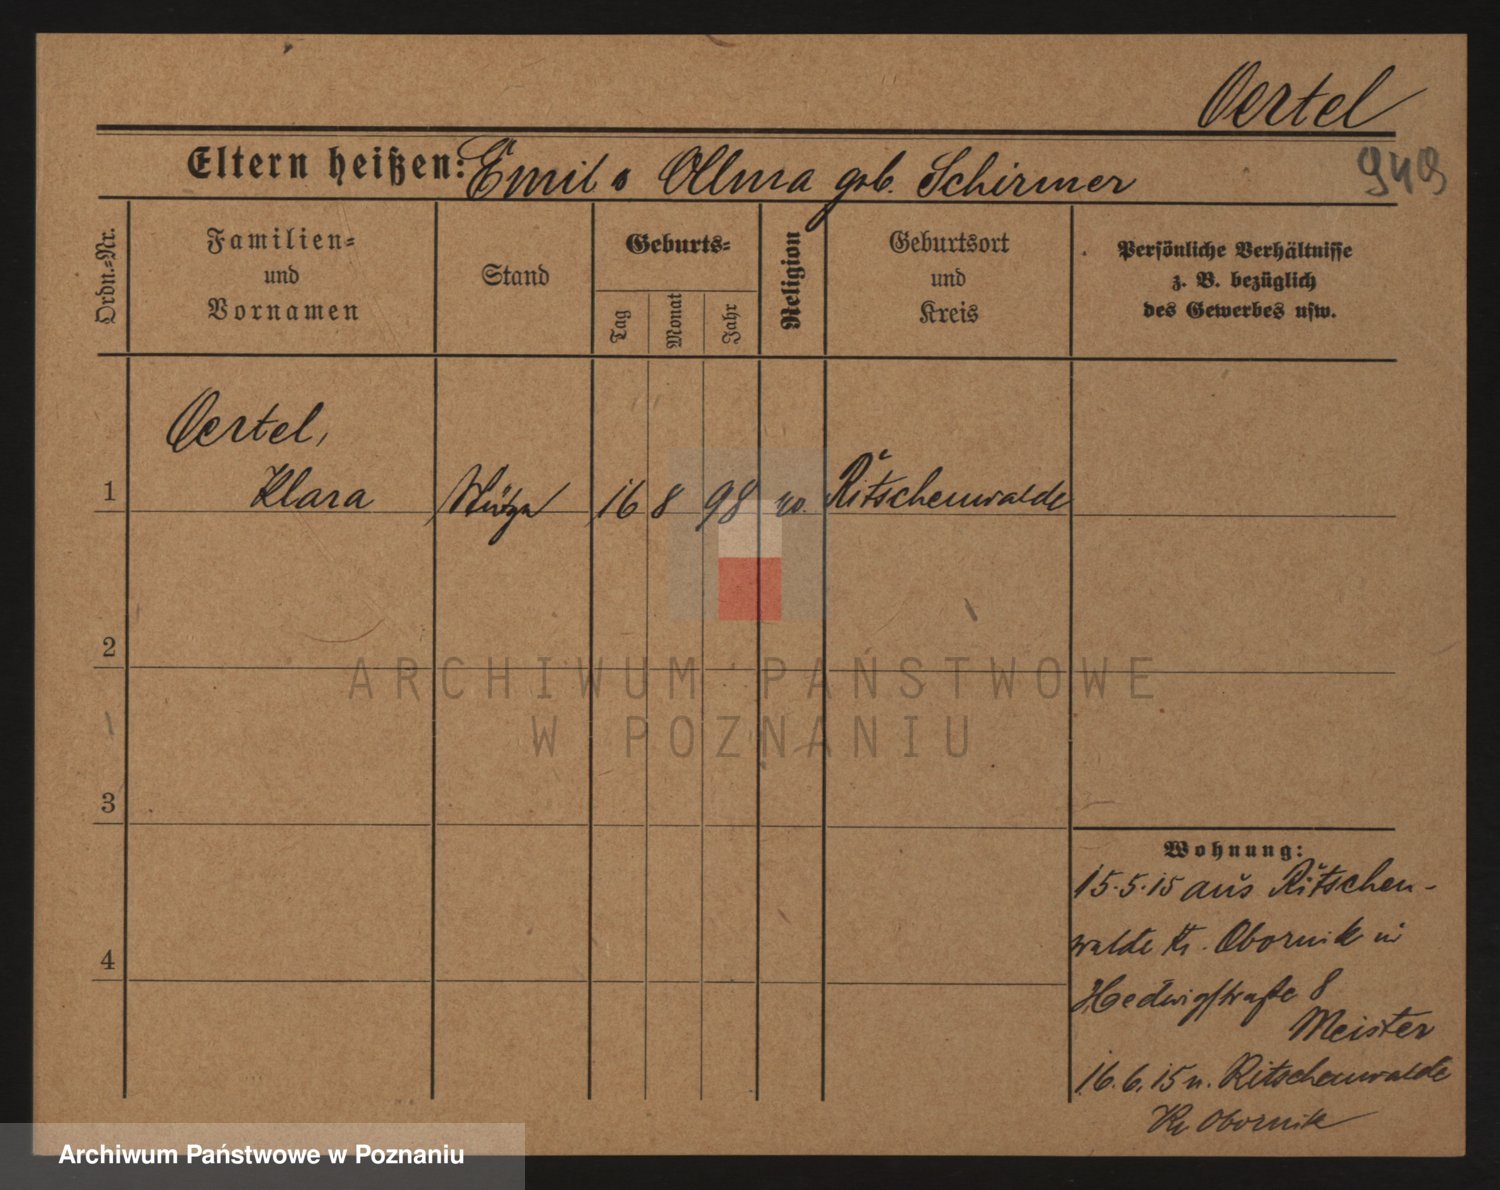 Oertel
949
Eltern heißen: Emil Ollma geb. Schirmer
Ordn.-Nr.
Familien-
und
Vornamen
Stand
Geburts-
Tag
Monat
Jahr
Religion
Geburtsort
und
Kreis
Persönliche Verhältnisse
z. B. bezüglich
des Gewerbes usw.
Oertel,
1 Klara Stütze 16 8 98 ev. Ritschenwalde
2
3
4
Wohnung:
15.5.15 aus Ritschen-
walde Kr. Obornik in
Hedwigstraße 8
Meister
16.6.15 n. Ritschenwalde
Kr Obornik
ARCHIWUM PAŃSTWOWE
W POZNANIU
Archiwum Państwowe w Poznaniu